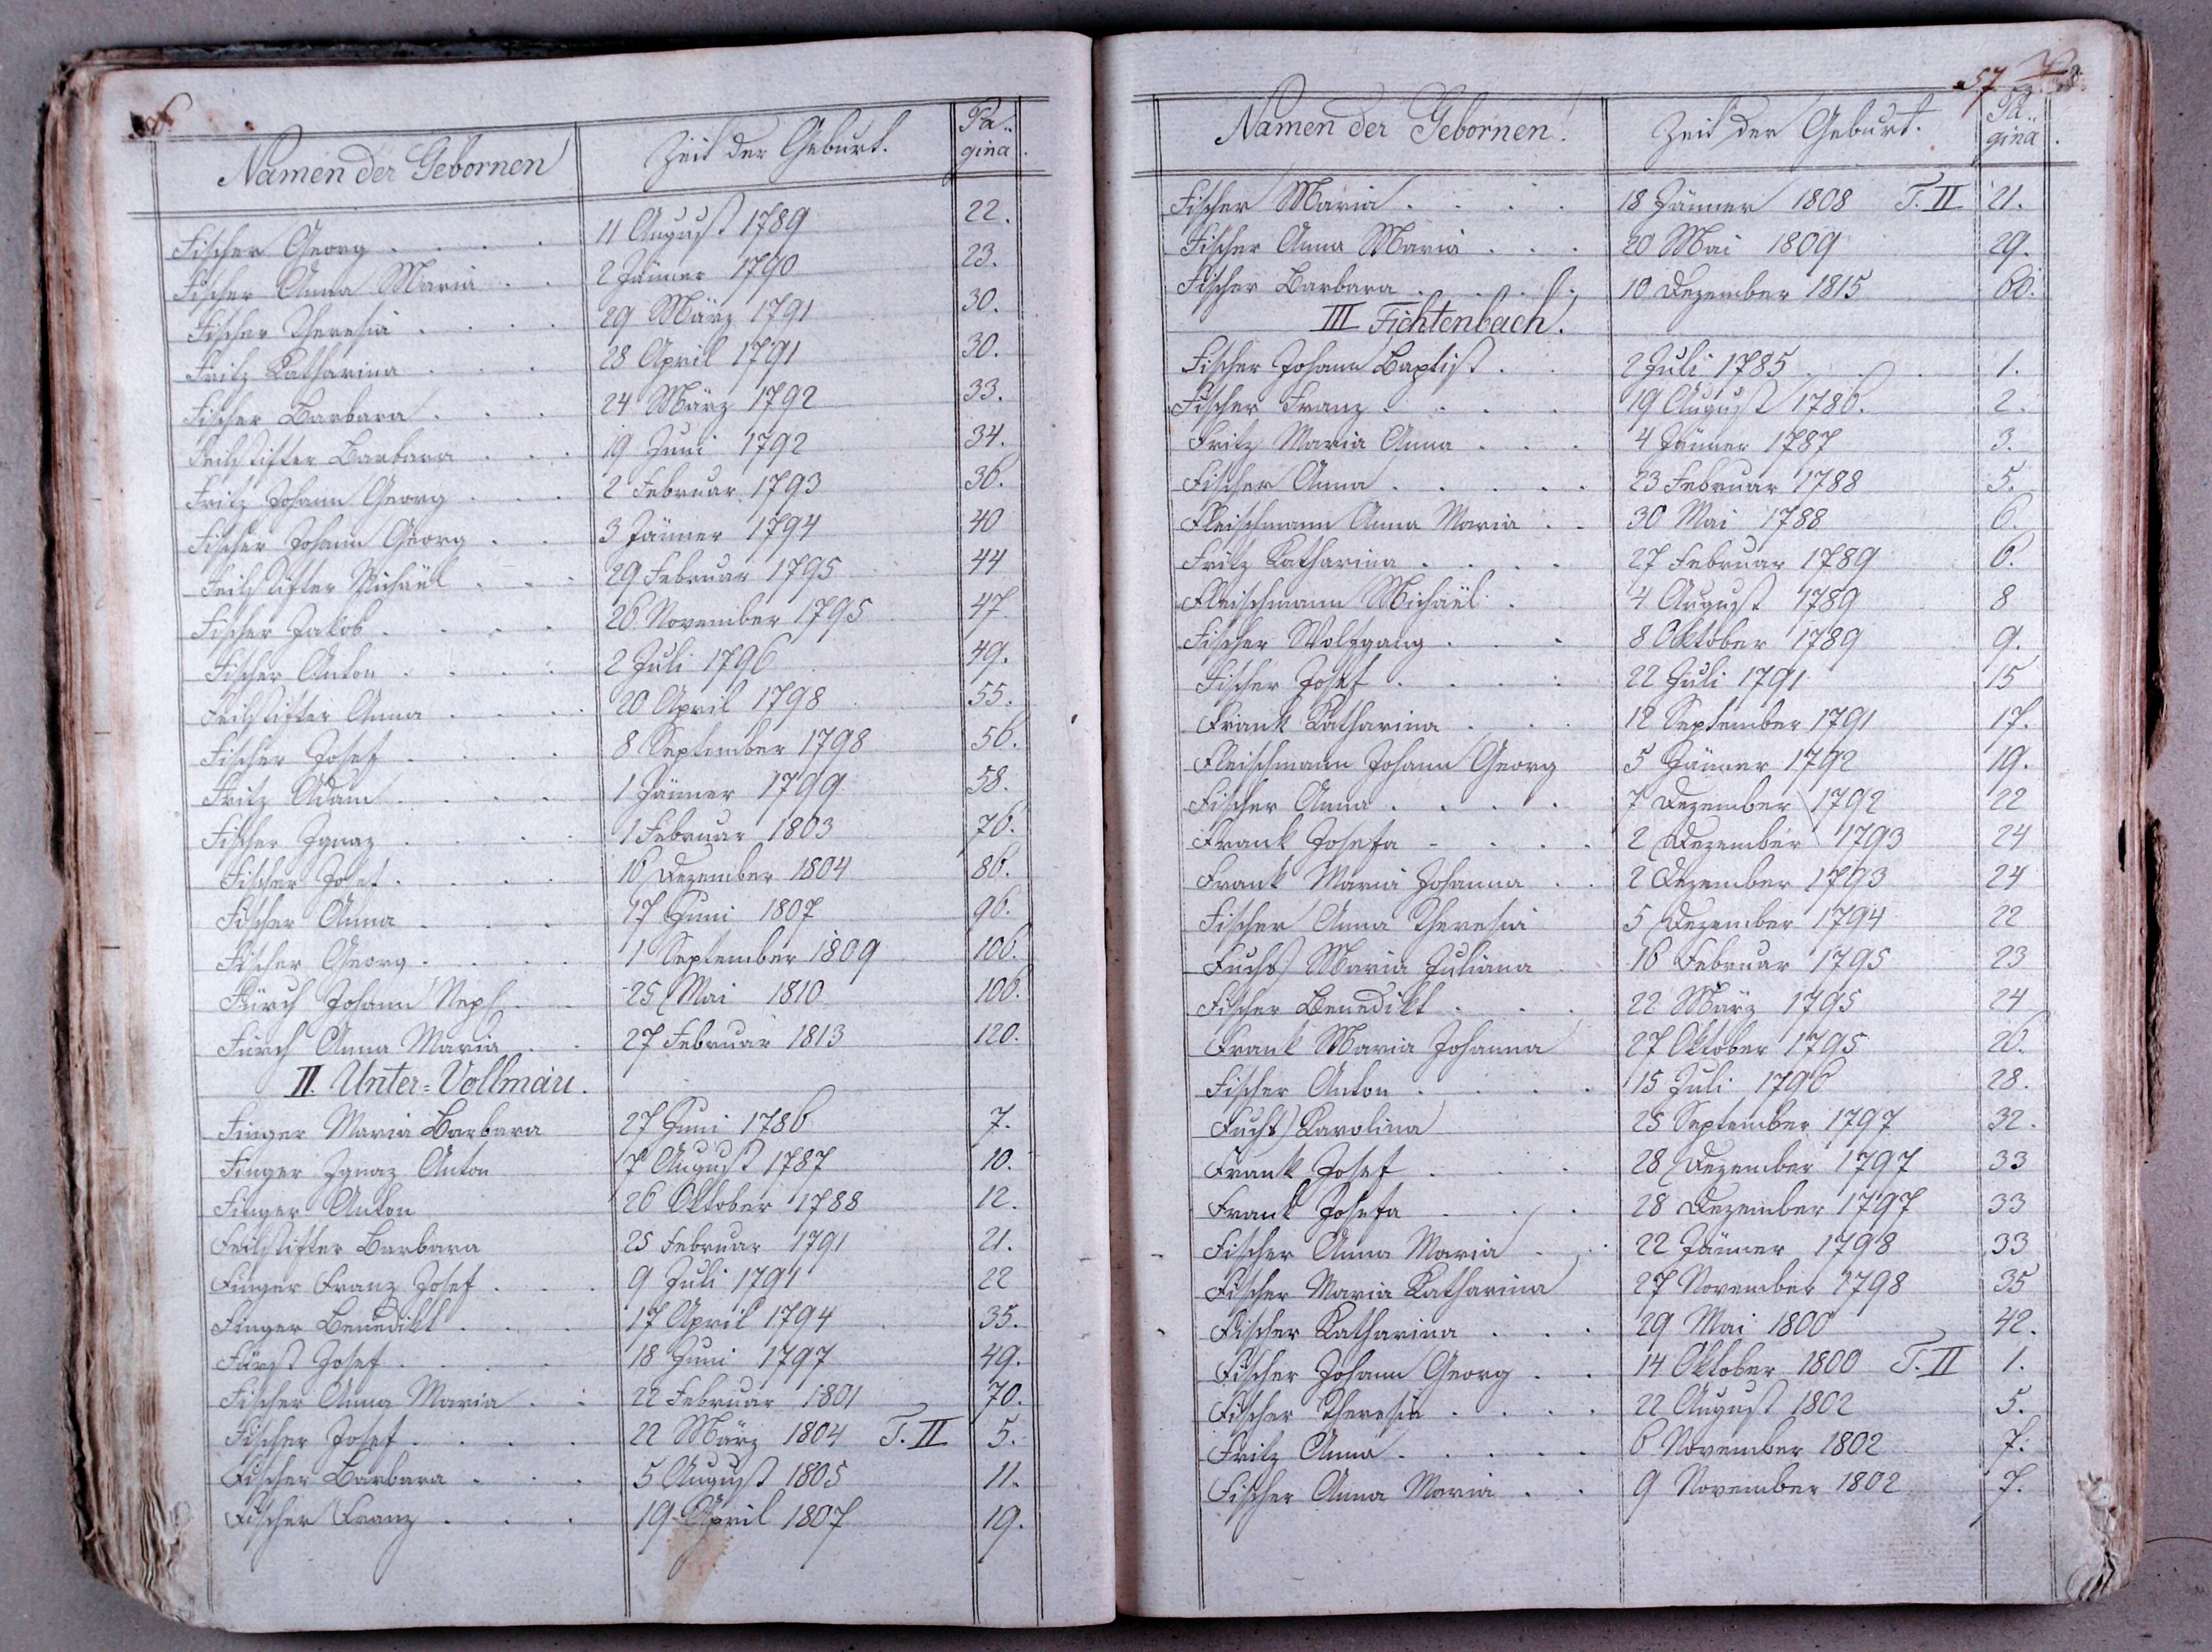 Namen der Gebornen Zeit der Geburt. Pagina.
Fischer Georg . . . . 11 August 1789 22.
Fischer Anna Maria . . 2 Jänner 1790 23.
Fischer Theresia . . . . 29 März 1791 30.
Fritz Katharina . . . 28 April 1791 30.
Fischer Barbara . . . 24 März 1792 33.
Feilstifter Barbara . . . 19 Juni 1792 34.
Fritz Johann Georg . . . 2 Februar 1793 36.
Fischer Johann Georg . . 3 Jänner 1794 40
Feilstifter Michäel . . . 29 Februar 1795 44
Fischer Jakob . . . . 26 November 1795 47.
Fischer Anton . . . . 2 Juli 1796 49.
Feilstifter Anna . . . . 20 April 1798 55.
Fischer Josef . . . . 8 September 1798 56.
Fritz Adam . . . . 1 Jänner 1799 58.
Fischer Ignaz . . . . 1 Februar 1803 76.
Fischer Josef . . . . 16 Dezember 1804 86.
Fischer Anna . . . . 17 Juni 1807 96.
Fischer Georg . . . . 1 September 1809 106.
Fürch Johann Nep. . . 25 Mai 1810 106.
Fürch Anna Maria . . 27 Februar 1813 120.
II. Unter=Vollmau.
Finger Maria Barbara 27 Juni 1786 7.
Finger Ignaz Anton 7 August 1787 10.
Finger Anton 26 Oktober 1788 12.
Feilstifter Barbara 25 Februar 1791 21.
Finger Franz Josef . . . 9 Juli 1791 22
Finger Benedikt . . . 17 April 1794 35.
Fürst Josef . . . . 18 Juni 1797 49.
Fischer Anna Maria . . 22 Februar 1801 70.
Fischer Josef . . . . 22 März 1804 T. II 5.
Fischer Barbara . . . 5 August 1805 11.
Fischer Franz . . . 19 April 1807 19.
57
Namen der Gebornen. Zeit der Geburt. Pagina.
Fischer Maria . . . . 18 Jänner 1808 T. II 21.
Fischer Anna Maria . . . 20 Mai 1809 29.
Fischer Barbara . . . . 10 Dezember 1815 60.
III Fichtenbach.
Fischer Johann Baptist . . 2 Juli 1785 . . . 1.
Fischer Franz . . . . 19 August 1786. 2.
Fritz Maria Anna . . . 4 Jänner 1787 3.
Fischer Anna . . . . . 23 Februar 1788 5.
Fleischmann Anna Maria . . 30 Mai 1788 6.
Fritz Katharina . . . . 27 Februar 1789 6.
Fleischmann Michäel . . 4 August 1789 8
Fischer Wolfgang . . . 8 Oktober 1789 9.
Fischer Josef . . . . 22 Juli 1791 15
Frank Katharina . . . 12 September 1791 17.
Fleischmann Johann Georg 5 Jänner 1792 19.
Fischer Anna . . . . 7 Dezember 1792 22
Frank Josefa - . . . 2 Dezember 1793 24
Frank Maria Johanna . . 2 Dezember 1793 24
Fischer Anna Theresia 5 Dezember 1794 22
Fuchs Maria Juliana . 16 Februar 1795 23
Fischer Benedikt . . . 22 März 1795 24
Frank Maria Johanna 27 Oktober 1795 26.
Fischer Anton . . . . 15 Juli 1796 28.
Fuchs Karolina 25 September 1797 32.
Frank Josef . . . 28 Dezember 1797 33
Frank Josefa . . . 28 Dezember 1797 33
Fischer Anna Maria . . 22 Jänner 1798 33
Fischer Maria Katharina 27 November 1798 35
Fischer Katharina . . . 29 Mai 1800 42.
Fischer Johann Georg . . 14 Oktober 1800 T. II 1.
Fischer Theresia . . . . 22 August 1802 5.
Fritz Anna . . . . . 6 November 1802 7.
Fischer Anna Maria . . 9 November 1802 7.